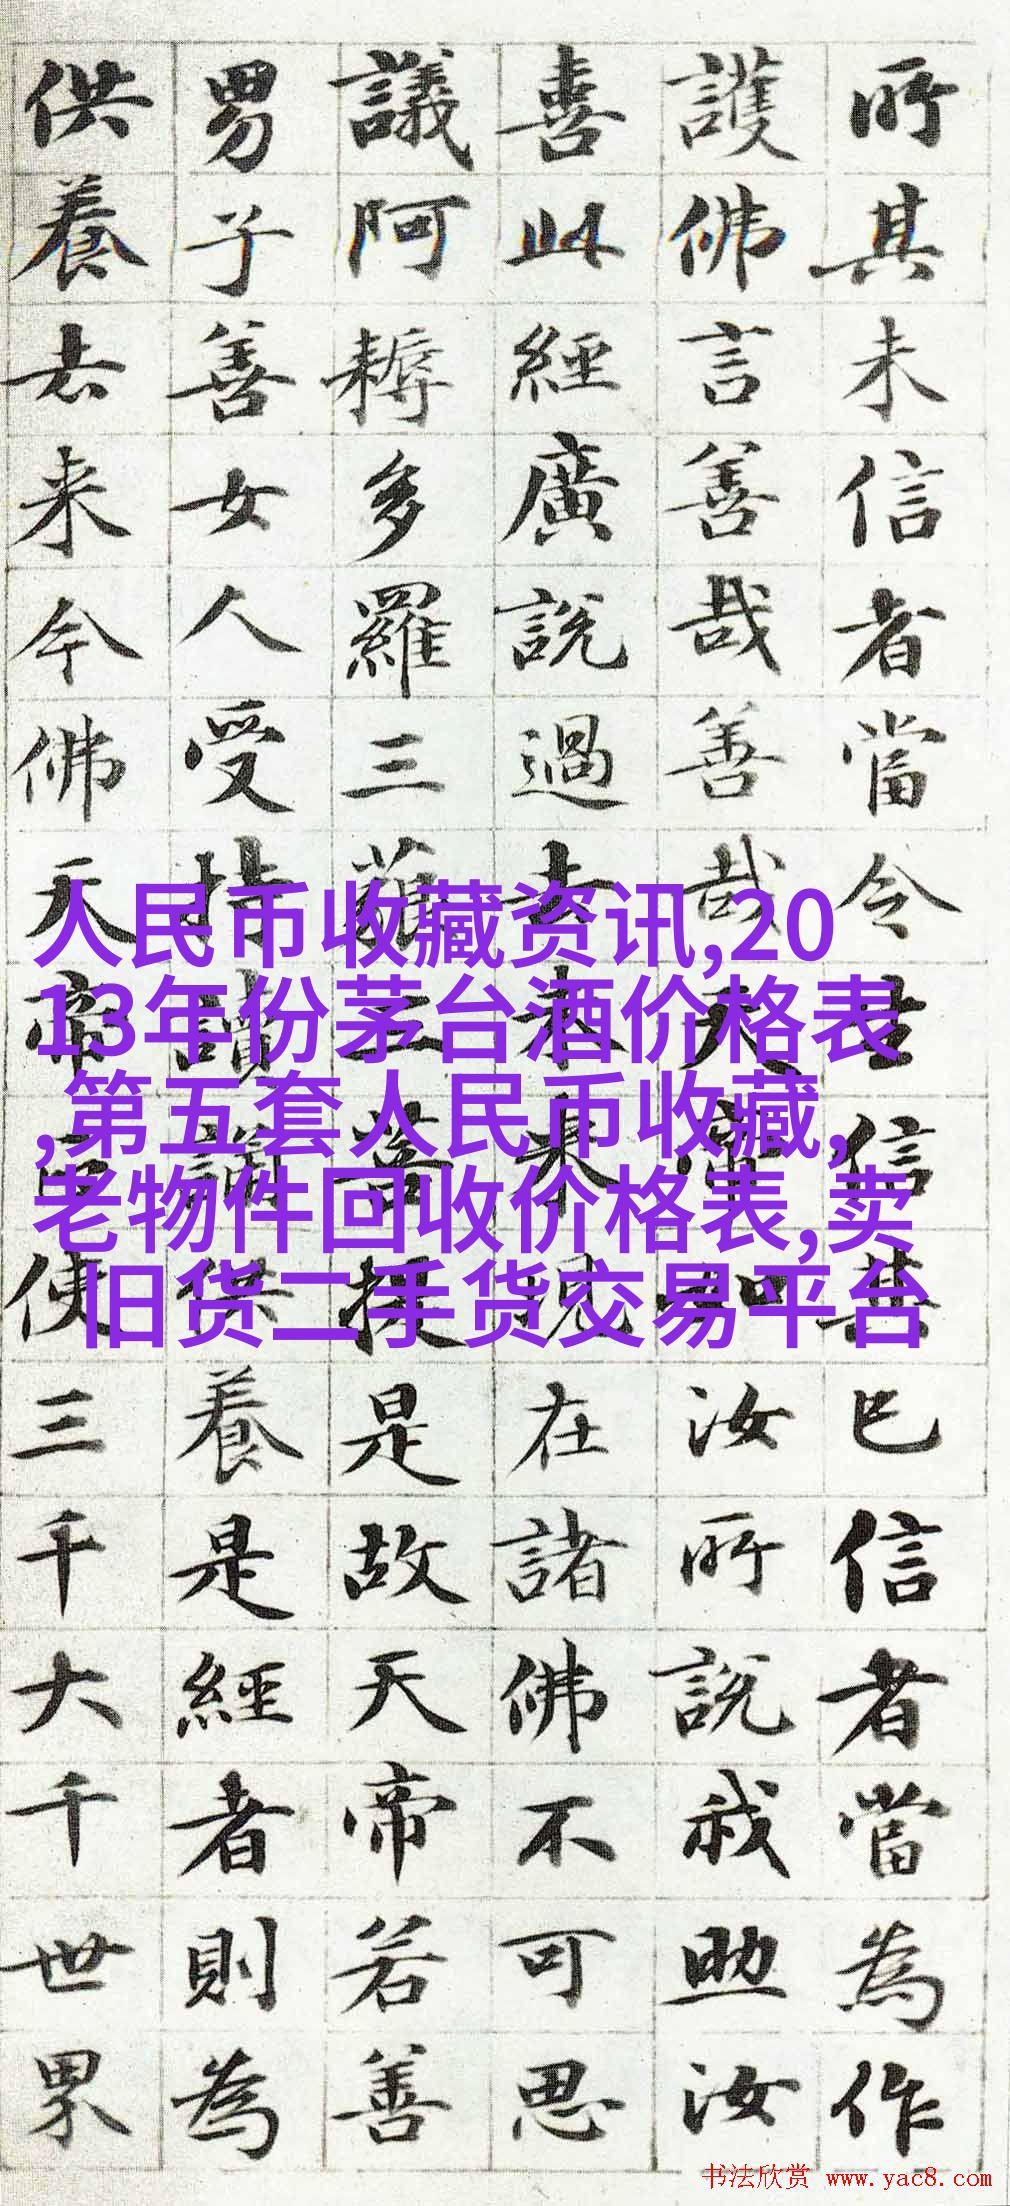 所其未信者當令生信其已信者當為作
護佛言善哉善哉天帝如汝所說我助汝
喜此經廣說過去未來現在諸佛不可思
議阿耨多羅三藐三菩提是故天帝若善
男子善女人受持讀誦供養是經者則為
供養去来今佛天帝正使三千大千世界
人民币收藏资讯,20
13年份茅台酒价格表
,第五套人民币收藏,
老物件回收价格表,卖
旧货二手货交易平台
书法欣赏 www.yac8.com